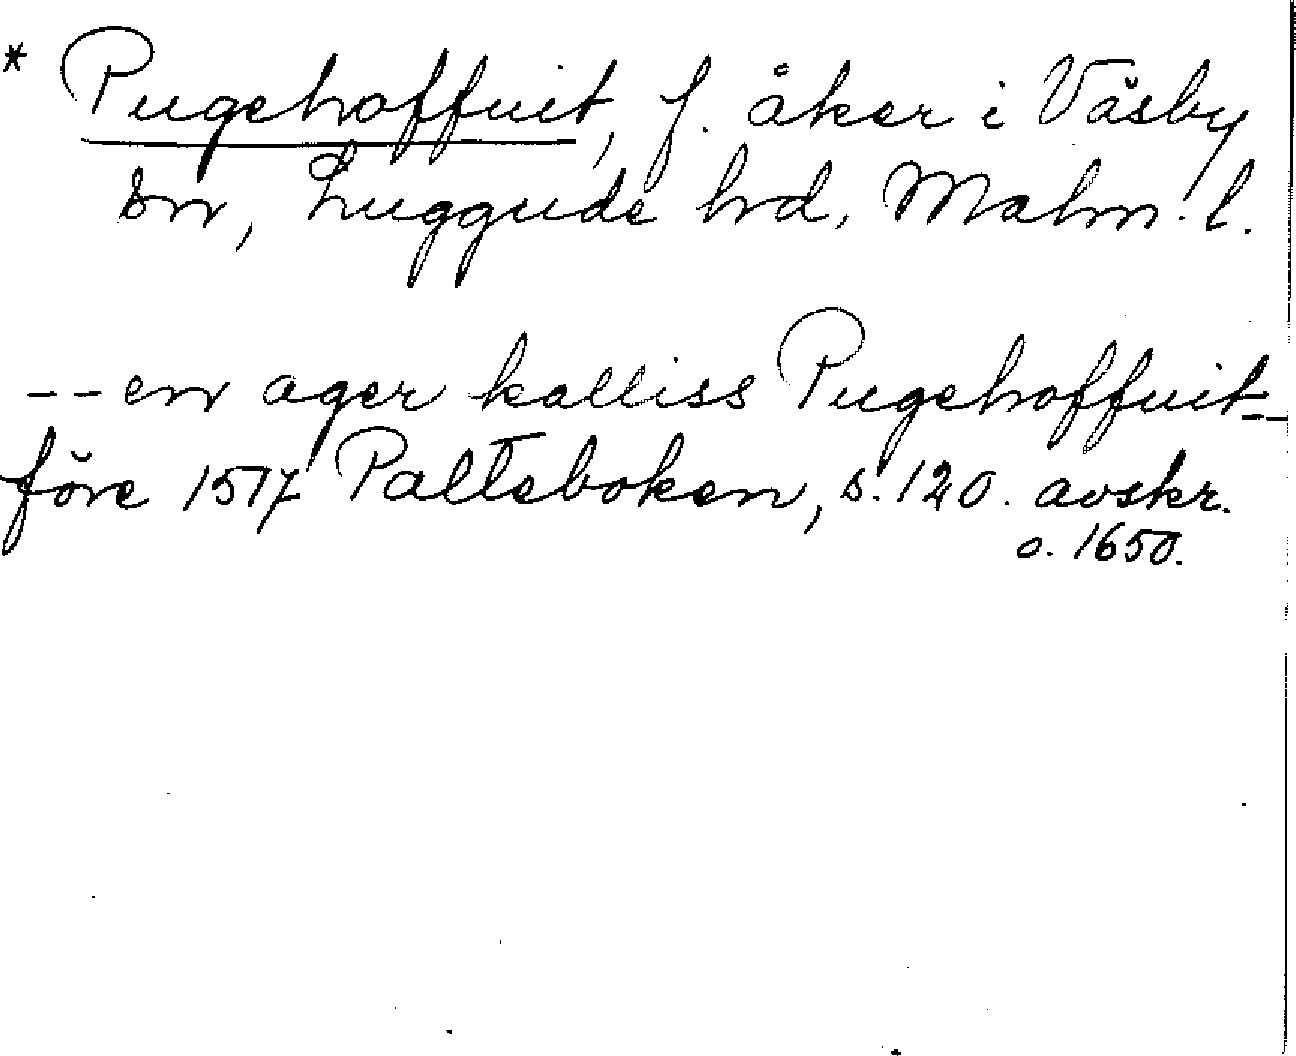 * Pugehoffuit, f. åker i Väsby
sn, Luggude hd, Malm. l.
-- en ager kalliss Pugehoffuit --
före 1517 Palteboken, s. 120. avskr.
o. 1650.